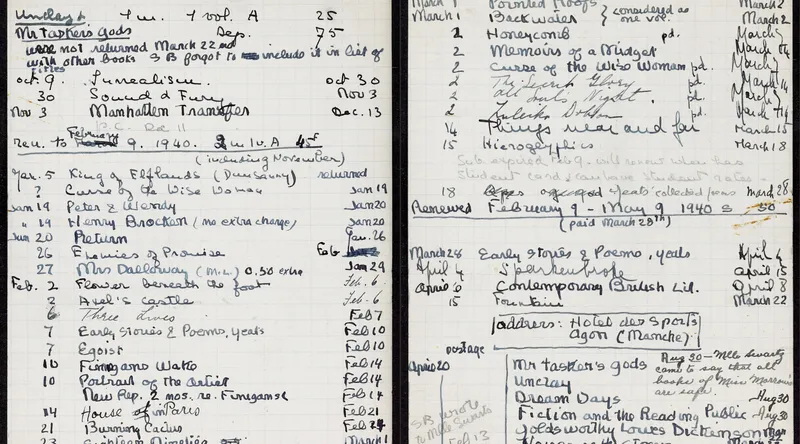 Unclay 1 m. 1 vol. A 25
Mr Tasker's Gods Dep. 75
were not returned March 22 and
with other books S B forgot to include it in list of
titles
oct 9. Surrealism. oct 30
30 Sound & Fury Nov 3
Nov 3 Manhattan Transfer Dec. 13
P.C. Dec 11
Ren. to February 9. 1940. 3 m 1 v. A 45f
(including November)
Jan. 5 King of Elflands (Dunsanny) returned
? Curse of the Wise Woman Jan 19
Jan 19 Peter & Wendy Jan 20
" 19 Henry Brocken (no extra charge) Jan 20
Jan 20 Return Jan. 26
26 Enemies of Promise Feb
27 Mrs Dalloway (M.L.) 0.50 extra Jan 29
Feb. 2 Flower beneath the foot Feb. 6.
2 Axel's Castle Feb. 6
6 Three Lives Feb 7
7 Early Stories & Poems, Yeats Feb 10
7 Egoist Feb 10
10 Finnegans Wake Feb 14
10 Portrait of the Artist Feb 14
New Rep. 2 mos. re. Finnegans Feb 14
14 House of in Paris Feb 21
21 Burning Cactus Feb 24
23 Eighteen Nineties March 1
March 1 Pointed Roofs March 2
March 1 Backwater } considered as one vol. March 2
2 Honeycomb pd. March 7
2 Memoirs of a Midget March 14
2 Curse of the Wise Woman pd. March 7
2 The Secret Glory pd. March 14
2 All Souls' Night. pd. March 7
2 Zuleika Dobson pd. March 14
14 Things near and far March 15
15 Hieroglyphics March 18
Sub expired Feb 9. will renew when has
student card & can have student rates -
18 Yeats' collected poems March 28
Renewed February 9 - May 9 1940 S 50
(paid March 28th)
March 28 Early Stories & Poems, Yeats April 4
April 4 Sparkenbroke April 15
April 6 Contemporary British Lit. April 8
15 Fountain March 22
address: Hotel des Sports
Agon (Manche)
postage
April 20 Mr Tasker's Gods
Aug 30 - Mlle Swarty
came to say that all
books of Miss
are safe
Unclay
Dream Days Aug 30
Fiction and the Reading Public Aug 30
Goldsworthy Lowes Dickinson
SB wrote
to Mlle Swarts
Feb 13